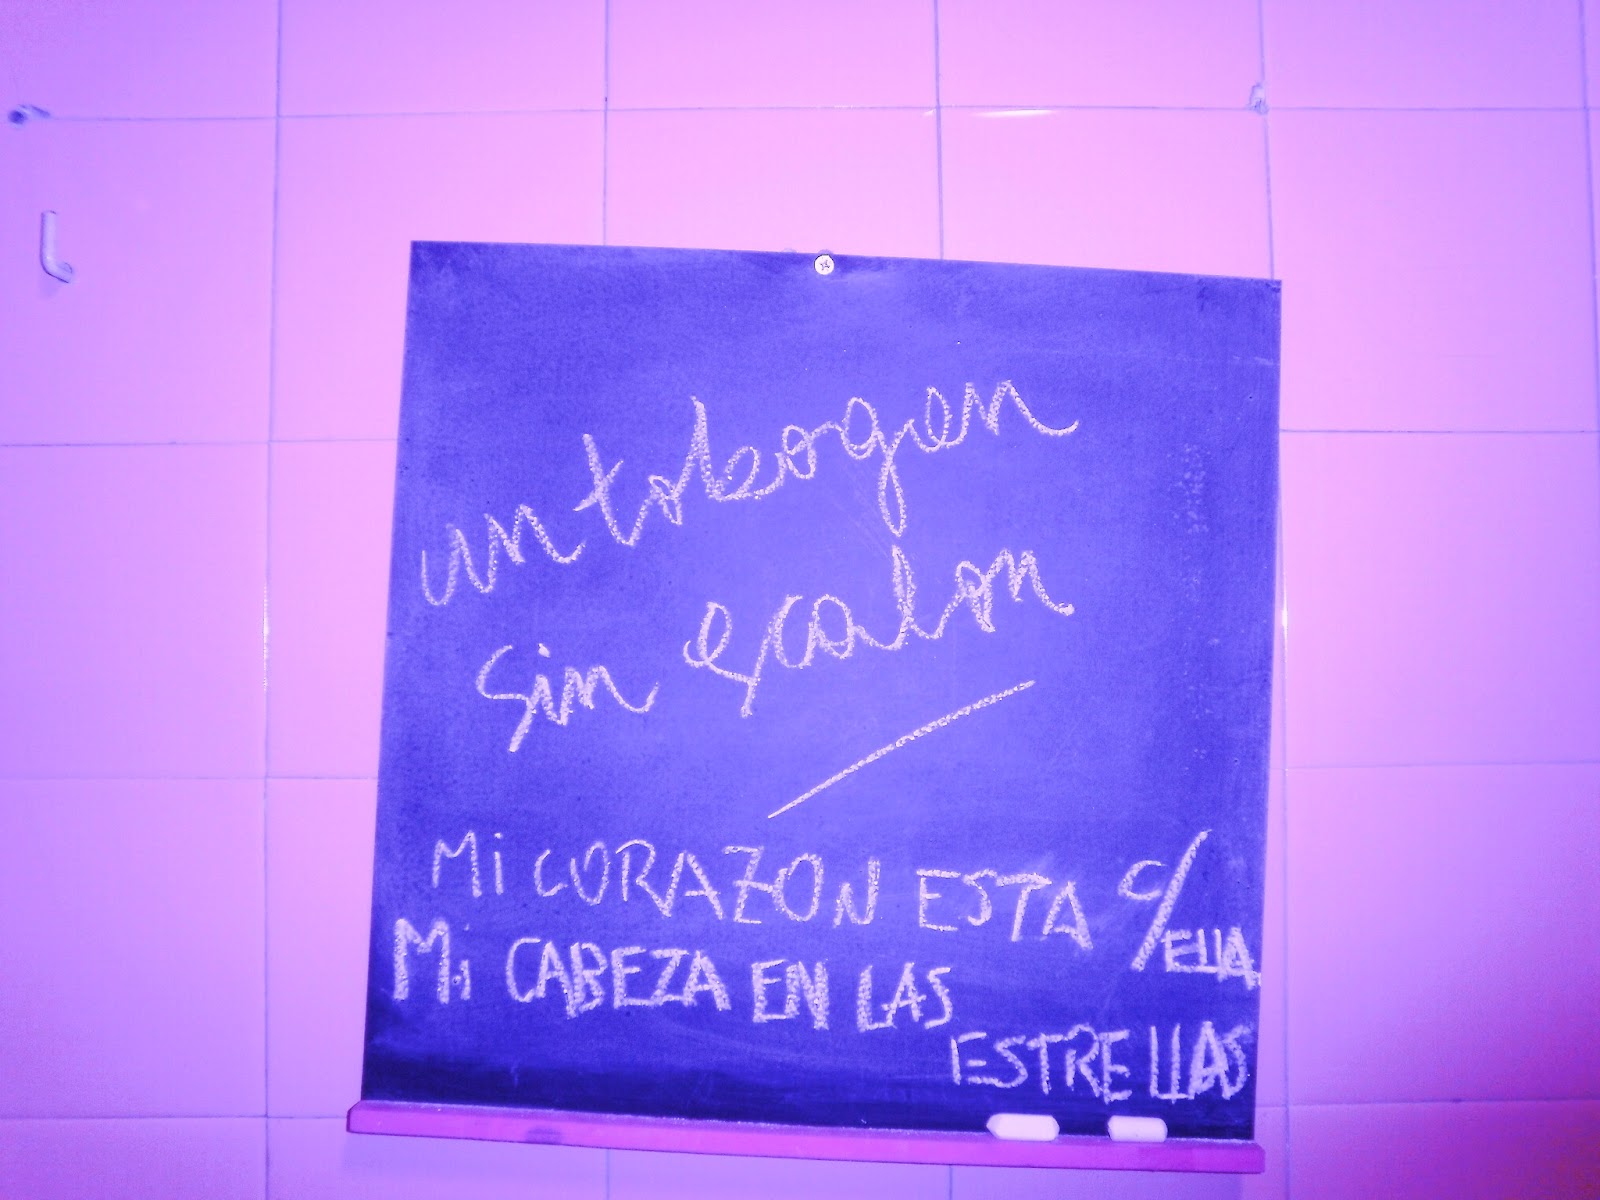 un tobogen
sin escalon
Mi CORAZON ESTA C/ELLA.
Mi CABEZA EN LAS
ESTRELLAS